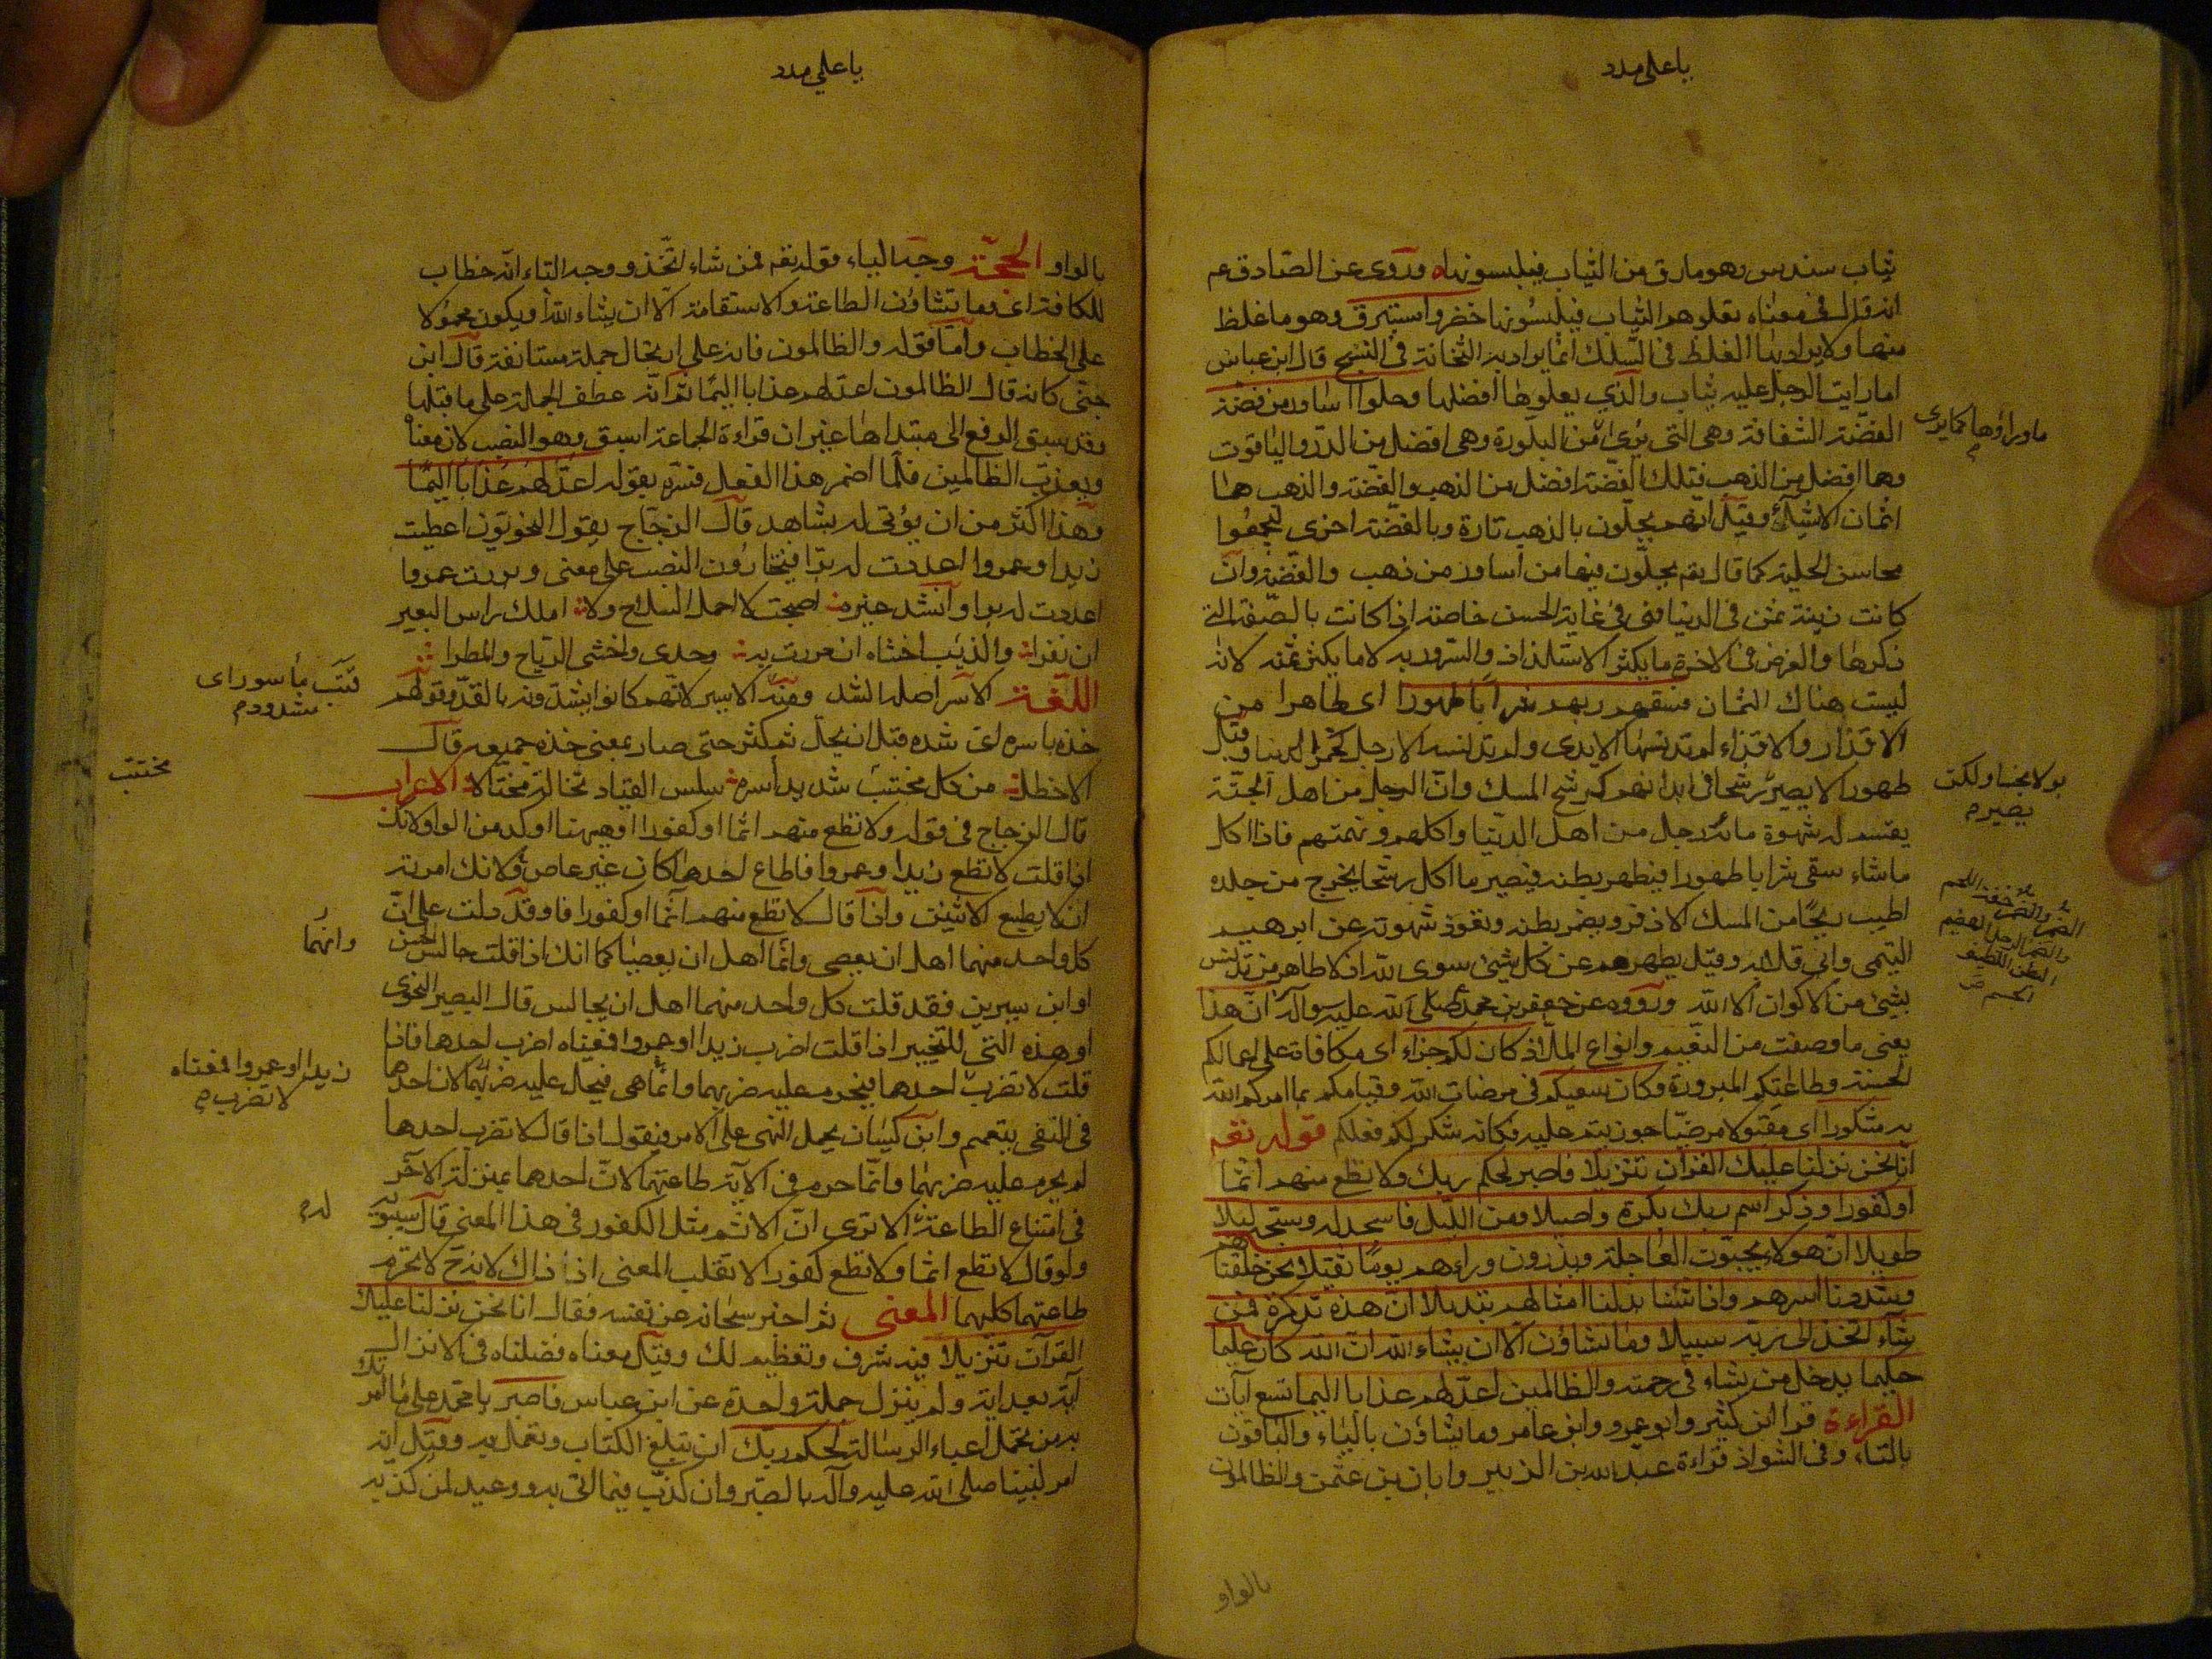 ياعلى مدد
ثياب سندس وهو مارق من الثياب فيلبسونها وروى عن الصادق عم
انه قال في معناه تعلوهم الثياب فيلبسونها خضر واستبرق وهو ما غلظ
منها ولا يراد بها الغلظ في السلك انما يراد به الثخانة في النسج قال ابن عباس
اما رايت الرجل عليه ثياب والذي يعلوها افضلها وحلوا اساور من فضة
الفضة الشفافة وهى التى يرى من البلورة وهى افضل من الدر والياقوت
وهما افضل من الذهب فتلك الفضة افضل من الذهب والفضة والذهب هما
اثمان الاشياء وقيل انهم يحلون بالذهب تارة وبالفضة اخرى ليجمعوا
محاسن الحلية كما قال تعم يحلون فيها من اساور من ذهب والفضة وان
كانت دنية ثمن في الدنيا فهى في غاية الحسن خاصة اذا كانت بالصفة التي
ذكرها والغرض في الاخرة ما يكثر الاستلذاذ والسرور به لا ما يكثر ثمنه لانه
ليست هناك اثمان وسقيهم ربهم شرابا طهورا اى طاهرا من
الاقذار والاقذاء لم تدنسها الايدى ولم تدنسه الارجل كخمر الدنيا وقيل
طهورا لا يصير رشحا في ابدانهم كرشح المسك وان الرجل من اهل الجنة
يقسم له شهوة مائة رجل من اهل الدنيا واكلهم ونهمتهم فاذا اكل
ما شاء سقى شرابا طهورا فيطهر بطنه فيصير ما اكل رشحا يخرج من جلده
اطيب ريحا من المسك الاذفر ويضمر بطنه وتعود شهوته عن ابرهيم
التيمى وابي قلابه وقيل يطهرهم عن كل شيئ سوى الله اذ لا طاهر من تدنس
بشيئ من الاكوان الا الله ورووه عن جعفر بن محمد صلى الله عليه وآله ان هذا
يعنى ما وصفت من النعيم وانواع الملاذ كان لكم جزاء اى مكافاة على اعمالكم
الحسنة وطاعتكم المبرورة وكان سعيكم في مرضات الله وقيامكم بما امركم الله
به مشكورا اى مقبولا مرضيا جوزيتم عليه فكانه شكر لكم فعلكم قوله تعم
انا نحن نزلنا عليك القران تنزيلا فاصبر لحكم ربك ولا تطع منهم اثما
او كفورا وذكر اسم ربك بكرة واصيلا ومن الليل فاسجد له وسبحه ليلا
طويلا ان هولاء يحبون العاجلة ويذرون وراءهم يوما ثقيلا نحن خلقناهم
وشددنا اسرهم واذا شئنا بدلنا امثالهم تبديلا ان هذه تذكرة فمن
شاء اتخذ الى ربه سبيلا وما تشاؤن الا ان يشاء الله ان الله كان عليما
حكيما يدخل من يشاء في رحمته والظالمين اعد لهم عذابا اليما تسع ايات
القراءة قرا ابن كثير وابو عمرو وابن عامر وما يشاؤن بالياء والباقون
بالتاء وفى الشواذ قراءة عبد الله بن الزبير وابان بن عثمن والظالمون
بالواو
ما وراؤها كما يرى
بولا نجسا ولكن
يصير م
ياعلى مدد
بالواو الحجة وجه الياء قوله تعم فمن شاء اتخذ ووجه التاء انه خطاب
للكافة اى وما تشاؤن الطاعة والاستقامة الا ان يشاء الله او يكون محمولا
على الخطاب واما قوله والظالمون فانه على ارتجال جملة مستانفة قال ابن
جنى كانه قال الظالمون اعد لهم عذابا اليما ثم انه عطف الجملة على ما قبلها
وقد سبق الرفع الى مبتداها غير ان قراءة الجماعة اسبق وهو النصب لان معناه
ويعذب الظالمين فلما اضمر هذا الفعل فسره بقوله اعد لهم عذابا اليما
وهذا اكثر من ان يؤتى له بشاهد قال الزجاج يقول النحويون اعطيت
زيدا وعمروا اعددت له برا فيختارون النصب على معنى وبررت عمروا
اعددت له برا وانشد غيره اصبحت لا احمل السلاح ولا املك راس البعير
ان نفرا والذئب اخشاه ان مررت به وحدى واخشى الرياح والمطرا
اللغة الاسر اصله الشد ومنه الاسير لانهم كانوا يشدونه بالقد وقولهم
خذه باسره اى شده قبل ان يحل ثم كثر حتى صار بمعنى خذه جميعه قال
الاخطل من كل مجتنب شديد اسره سلس القياد تخاله مختالا الاعراب
قال الزجاج في قوله ولا تطع منهم اثما او كفورا او هيهنا اوكد من الواو لانك
اذا قلت لا تطع زيدا وعمروا فاطاع احدهما كان غير عاص لانك امرته
ان لا يطيع الاثنين واذا قال لا تطع منهم اثما او كفورا فاو قد دلت على ان
كل واحد منهما اهل ان يعصى وانما اهل ان يعصيا كما انك اذا قلت جالس الحسن
او ابن سيرين فقد قلت كل واحد منهما اهل ان يجالس قال البصير النحوى
او هذه التى للتخيير اذا قلت اضرب زيدا او عمروا فمعناه اضرب احدهما فاذا
قلت لا تضرب احدهما فيحرم عليه ضربهما وانما هى فيحل عليه ضربهما لان احدهما
فى النفى يتعمم وابن كيسان يحمل النهى على الامر فيقول اذا قال لا تضرب احدهما
لم يحرم عليه ضربهما وانما حرم في الآية طاعتهما لان احدهما بمنزلة الاخر
في امتناع الطاعة الا ترى ان الاثم مثل الكفور في هذا المعنى قال سيبويه
ولو قال لا تطع اثما ولا تطع كفورا لانقلب المعنى اذ ذاك لانه ح لا تحرم
طاعتهما كليهما المعنى ثم اخبر سبحانه عن نفسه فقال انا نحن نزلنا عليك
القرآن تنزيلا فيه شرف وتعظيم لك وقيل معناه فصلناه في الانزال
آية بعد اية ولم ينزل جملة واحدة عن ابن عباس فاصبر يا محمد على ما امرتك
به من تحمل اعباء الرسالة لحكم ربك ان تبلغ الكتاب وتعمل به وقيل انه
امر لنبينا صلى الله عليه وآله بالصبر وان كذب فيما اتى به ووعيد لمن كذبه
قتب ماسور اى
مشدود م
مجتنب
وانهما
زيدا او عمروا فمعناه
لا تضرب م
له م